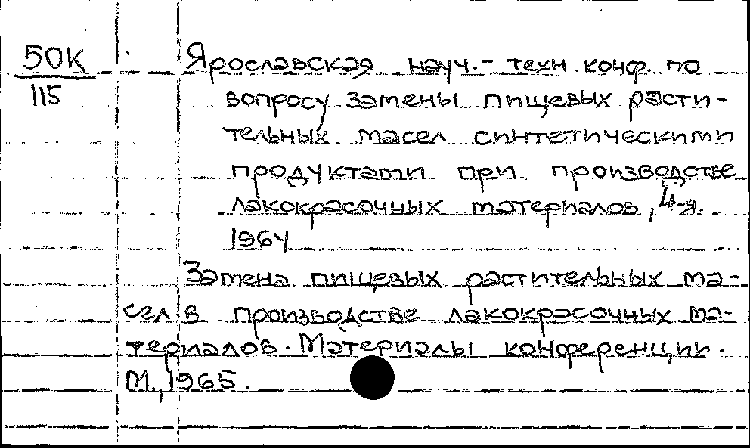 50К
115
Ярославская науч.- техн. конф. по
вопросу замены пищевых расти-
тельных масел синтетическими
продуктами при производстве
лакокрасочных материалов, 4-я.
1964
Замена пищевых растительных ма-
сел в производстве лакокрасочных ма-
териалов. Материалы конференции.
М., 1965.